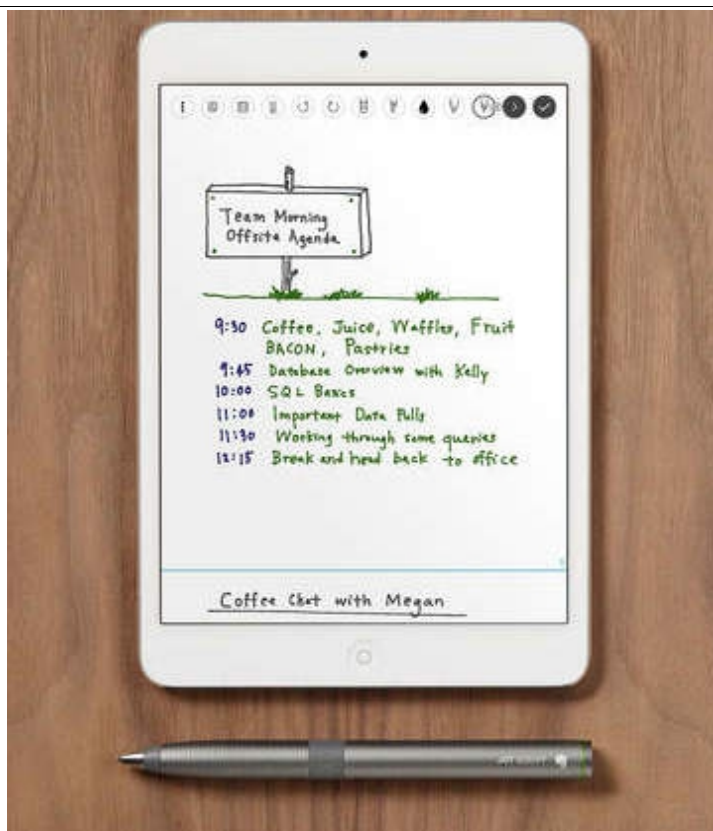 Team Morning
Offsite Agenda
9:30 Coffee, Juice, Waffles, Fruit
BACON, Pastries
9:45 Database Overview with Kelly
10:00 SQL Basics
11:00 Important Data Pulls
11:30 Working through some queries
12:15 Break and head back to office
Coffee Chat with Megan